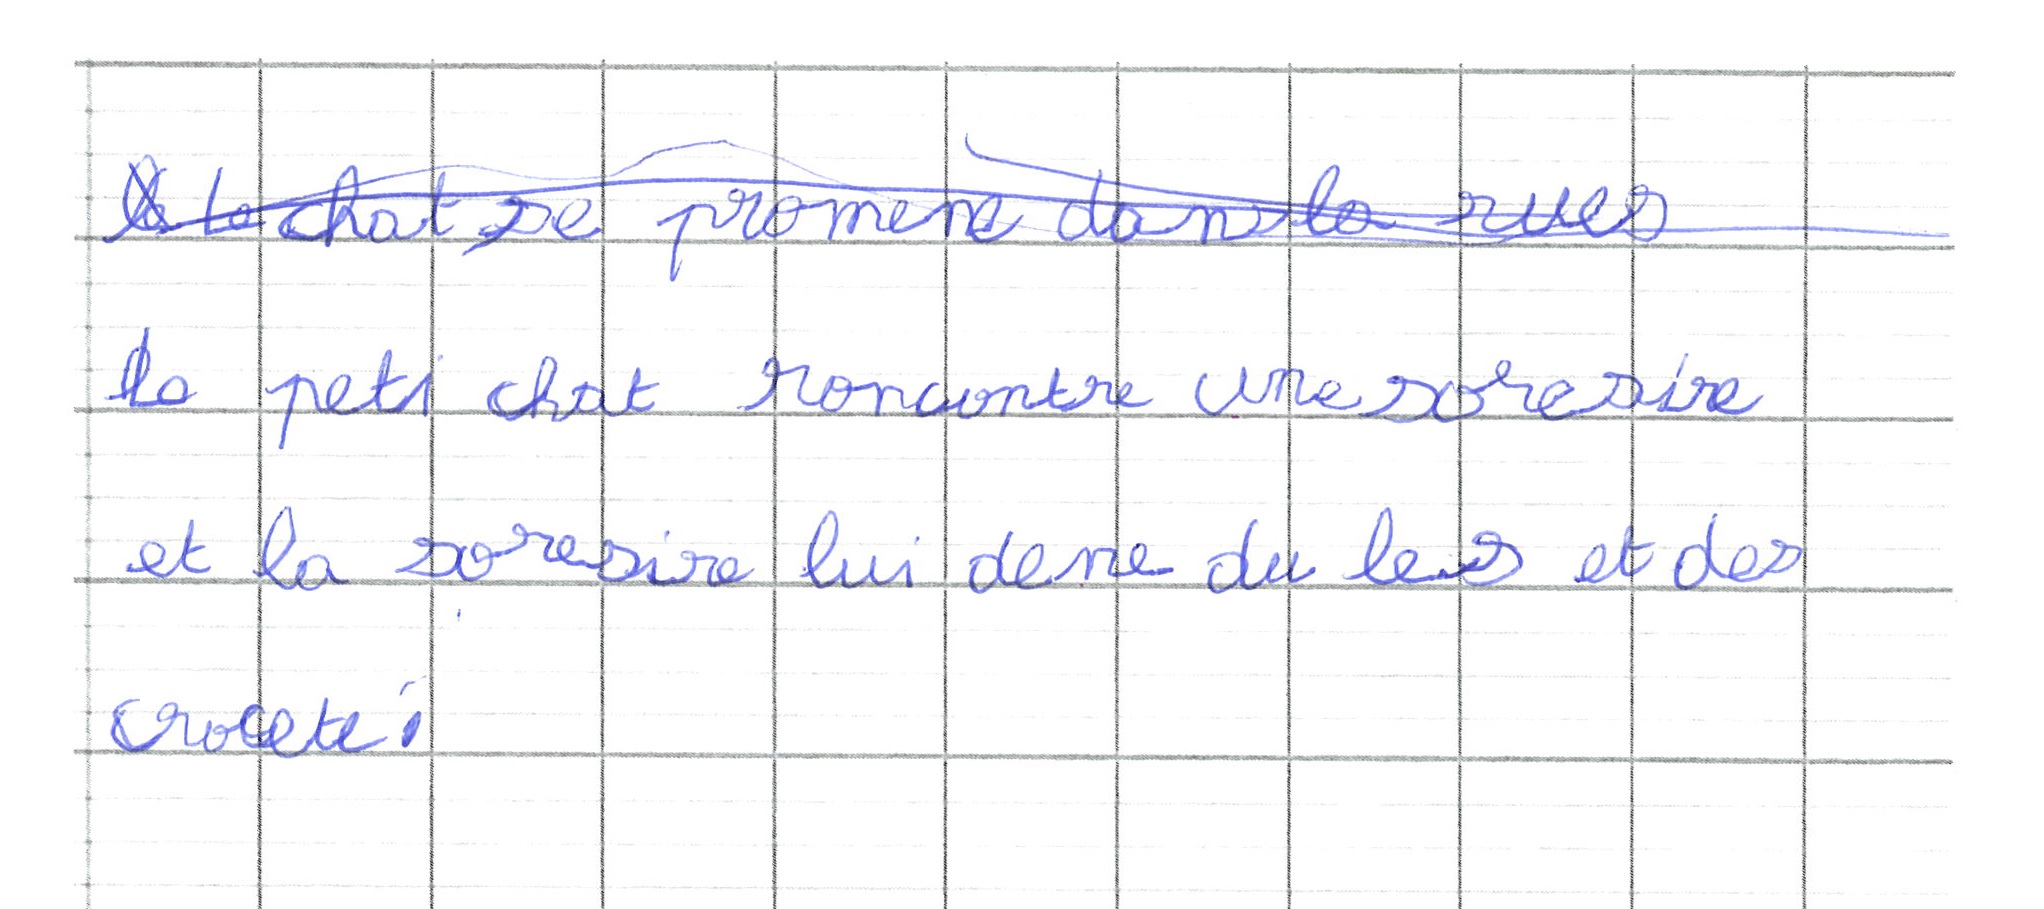 le chat se promene dans la rues
le peti chat roncontre une soresire
et la soresire lui dene du les et des
crocete